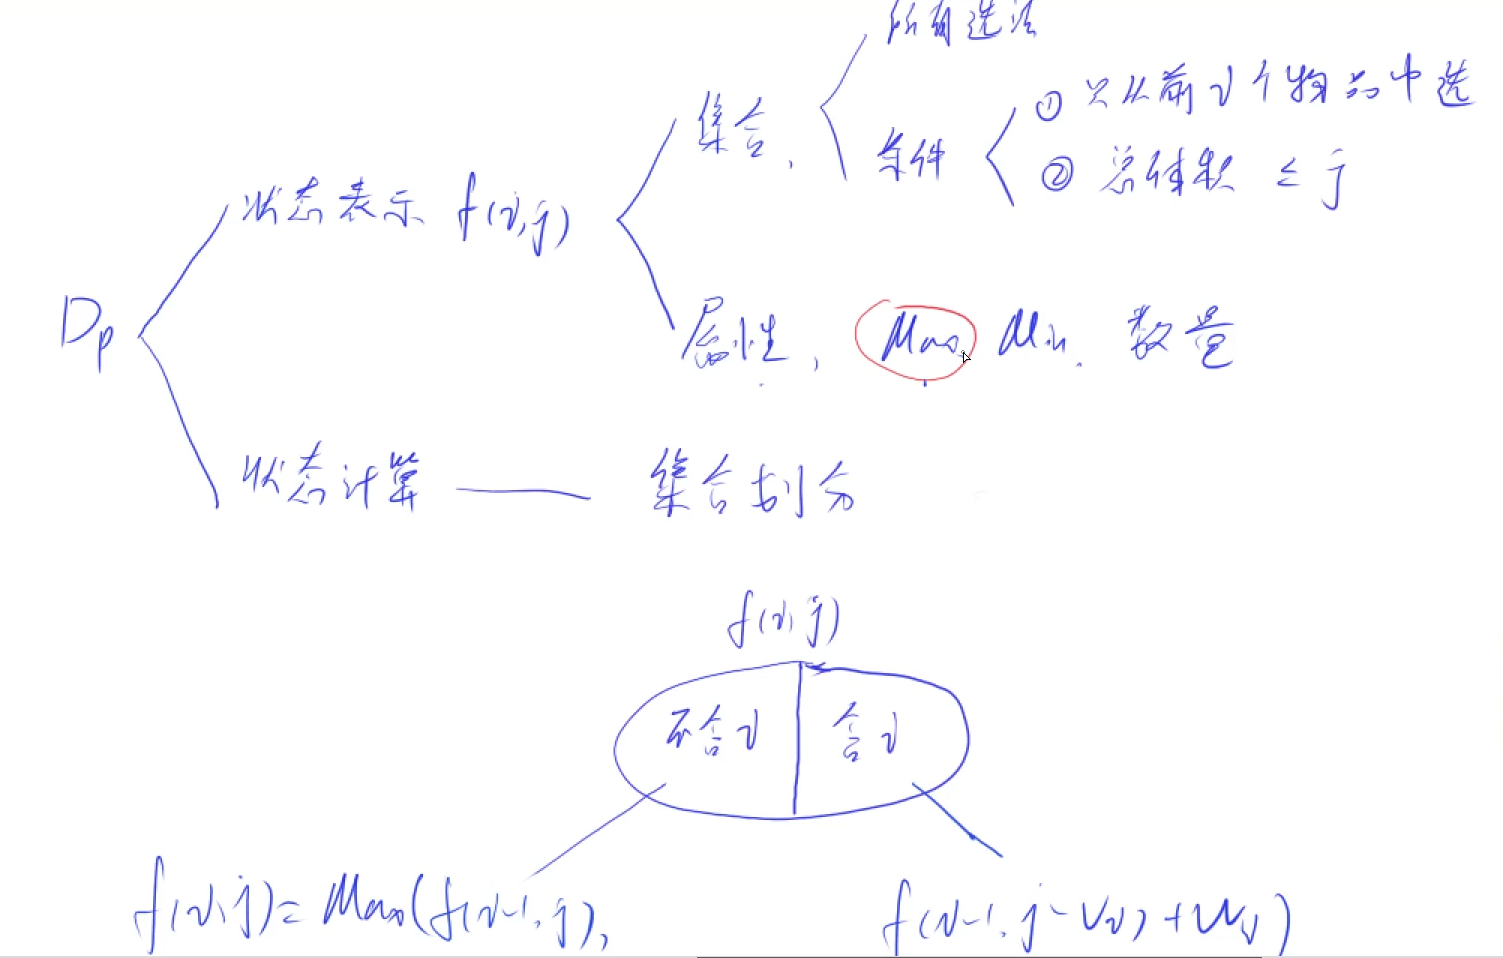 所有选法
集合,
条件
① 只从前i个物品中选
② 总体积 ≤ j
Dp
状态表示 f(i,j)
属性, Max, Min, 数量
状态计算 — 集合划分
f(i,j)
不含i 含i
f(i,j)= Max(f(i-1,j), f(i-1,j-vi)+wi)